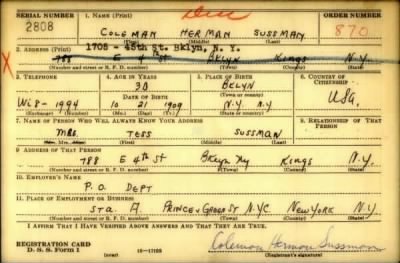 SERIAL NUMBER 1. NAME (Print) Dec ORDER NUMBER
2808 COLEMAN HERMAN SUSSMAN 870
(First) (Middle) (Last)
2. ADDRESS (Print) 1705 - 45th St. Bklyn, N. Y.
X 788 E 4th St BKLYN KINGS N.Y.
(Number and street or R. F. D. number) (Town) (County) (State)
3. TELEPHONE 4. AGE IN YEARS 5. PLACE OF BIRTH 6. COUNTRY OF CITIZENSHIP
30 BKLYN
DATE OF BIRTH (Town or county)
Wi 8-1994 10 21 1909 N.Y. N.Y USA
(Exchange) (Number) (Mo.) (Day) (Yr.) (State or country)
7. NAME OF PERSON WHO WILL ALWAYS KNOW YOUR ADDRESS 8. RELATIONSHIP OF THAT PERSON
MRS. TESS SUSSMAN
(Mr., Mrs., Miss) (First) (Middle) (Last)
9. ADDRESS OF THAT PERSON
788 E 4th St Bklyn Ny Kings N.Y.
(Number and street or R. F. D. number) (Town) (County) (State)
10. EMPLOYER'S NAME
P.O. DEPT
11. PLACE OF EMPLOYMENT OR BUSINESS
Sta. A. PRINCE & St NYC NEW YORK N.Y
(Number and street or R. F. D. number) (Town) (County) (State)
I AFFIRM THAT I HAVE VERIFIED ABOVE ANSWERS AND THAT THEY ARE TRUE.
REGISTRATION CARD
D. S. S. Form 1 (over) 16-17105 Coleman Herman Sussman
(Registrant's signature)